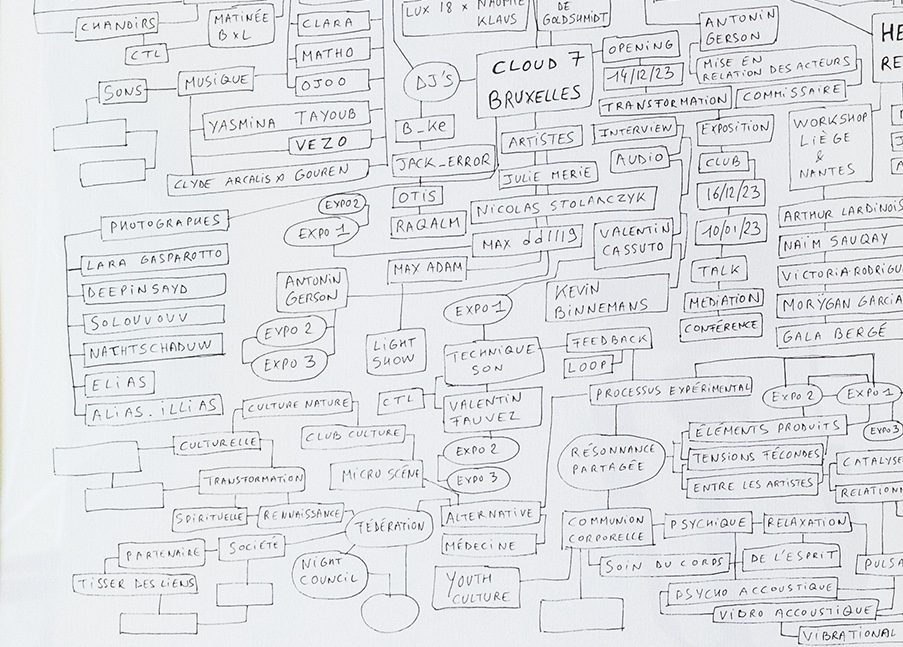 CHANOIRS
CTL
MATINÉE
BXL
CLARA
MATHO
OJOO
SONS
MUSIQUE
YASMINA TAYOUB
VEZO
CLYDE ARCALIS X GOUREN
LUX 18 X NAOMIE
KLAUS
DE
GOLDSHMIDT
DJ'S
CLOUD 7
BRUXELLES
B_KE
JACK_ERROR
OTIS
RAQALM
OPENING
14/12/23
TRANSFORMATION
ANTONIN
GERSON
MISE EN
RELATION DES ACTEURS
COMMISSAIRE
HE
RE
ARTISTES
INTERVIEW
AUDIO
EXPOSITION
CLUB
16/12/23
10/01/23
TALK
MEDIATION
CONFÉRENCE
WORKSHOP
LIÈGE
&
NANTES
ARTHUR LARDINOIS
NAÏM SAUQAY
VICTORIA RODRIGU
MORŸGAN GARCIA
GALA BERGÉ
JULIE MERIE
NICOLAS STOLARCZYK
MAX dd1119
MAX ADAM
VALENTIN
CASSUTO
KEVIN
BINNEMANS
PHOTOGRAPHES
EXPO2
EXPO 1
LARA GASPAROTTO
DEEPINSAYD
SOLOUVOUV
NATHTSCHADUW
ELIAS
ALIAS.ILLIAS
ANTONIN
GERSON
EXPO 2
EXPO 3
LIGHT
SHOW
EXPO 1
TECHNIQUE
SON
FEEDBACK
LOOP
CTL
VALENTIN
FAUVEZ
EXPO 2
EXPO 3
PROCESSUS EXPÉRIMENTAL
EXPO 2
EXPO 1
EXPO 3
RÉSONNANCE
PARTAGÉE
ÉLÉMENTS PRODUITS
TENSIONS FÉCONDES
ENTRE LES ARTISTES
CATALYSE
RELATIONN
CULTURE NATURE
CULTURELLE
CLUB CULTURE
TRANSFORMATION
MICRO SCÈNE
SPIRITUELLE
RENNAISSANCE
FÉDÉRATION
ALTERNATIVE
MÉDECINE
PARTENAIRE
SOCIÉTÉ
TISSER DES LIENS
NIGHT
COUNCIL
YOUTH
CULTURE
COMMUNION
CORPORELLE
PSYCHIQUE
RELAXATION
SOIN DU CORPS
DE L'ESPRIT
PULSA
PSYCHO ACCOUSTIQUE
VIBRO ACCOUSTIQUE
VIBRATIONAL